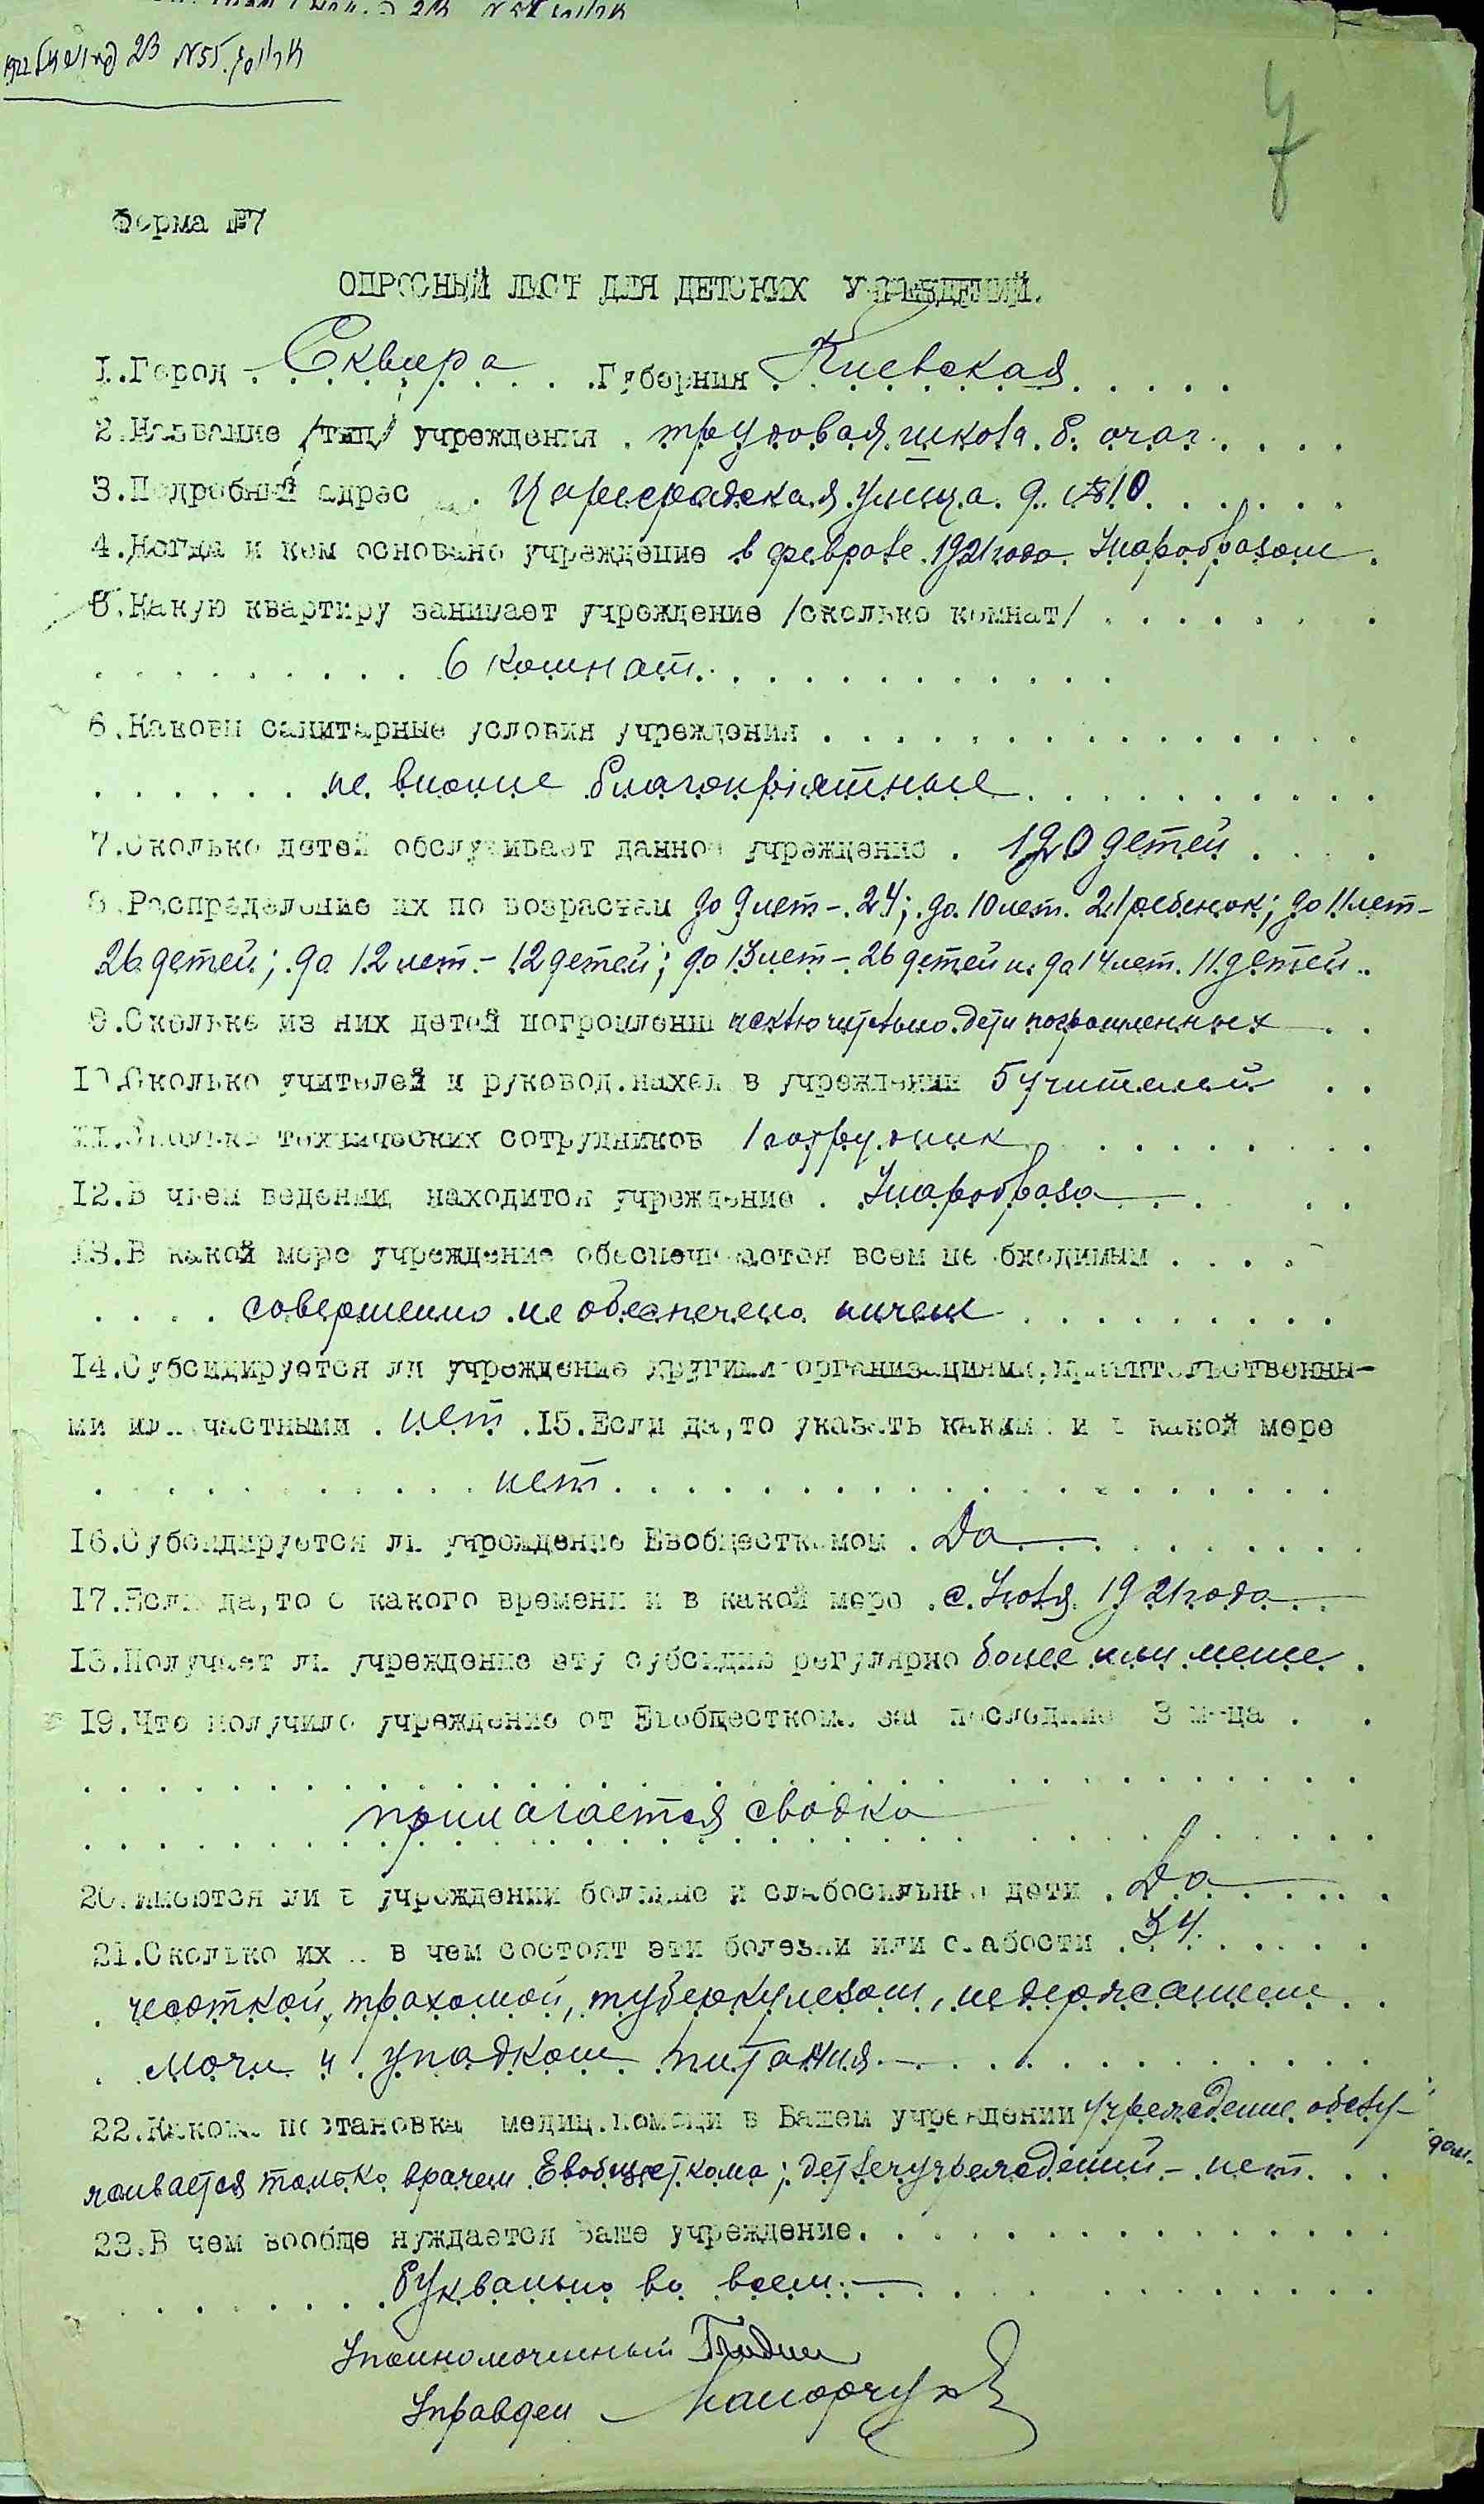 7
Форма №7
ОПРОСНЫЙ ЛИСТ ДЛЯ ДЕТСКИХ УЧРЕЖДЕНИЙ.
1.Город Сквира Губерния Киевская
2.Название /тип/ учреждения трудовая школа б. очаг
3.Подробный адрес улица д. №10
4.Когда и кем основано учреждение в феврале 1921 года Унаробразом
5.Какую квартиру занимает учреждение /сколько комнат/
6 комнат
6.Каковы санитарные условия учреждения
не вполне благоприятные
7.Сколько детей обслуживает данное учреждение . 120 детей
8.Распределение их по возрастам до 9 лет - 24; до 10 лет. 21 ребенок; до 11 лет -
26 детей; до 12 лет - 12 детей; до 13 лет - 26 детей и до 14 лет. 11 детей.
9.Сколько из них детей погромленных исключительно дети погромленных
10.Сколько учителей и руковод.наход в учреждении 5 учителей
11.Сколько технических сотрудников 1 сотрудник
12.В чьем ведении находится учреждение . Унаробраза
13.В какой мере учреждение обеспечивается всем необходимым
совершенно не обеспечено ничем
14.Субсидируется ли учреждение другими организациями,правительственны-
ми или частными . нет .15.Если да,то указать какими и в какой мере
нет
16.Субсидируется ли учреждение Евобщесткомом . Да
17.Если да,то с какого времени и в какой мере . с Июля 1921 года
18.Получает ли учреждение эту субсидию регулярно более или менее
19.Что получило учреждение от Евобщесткома за последние 3 м-ца
прилагается сводка
20.Имеются ли в учреждении больные и слабосильные дети . Да
21.Сколько их и в чем состоят эти болезни или слабости . 34
чесоткой, трахомой, туберкулезом, недержанием
мочи и упадком питания
22.Какова постановка медиц.помощи в Вашем учреждении Учреждение обслу-
живается только врачем Евобщесткома; - нет.
23.В чем вообще нуждается Ваше учреждение.
буквально во всем
Уполномоченный
Управдел